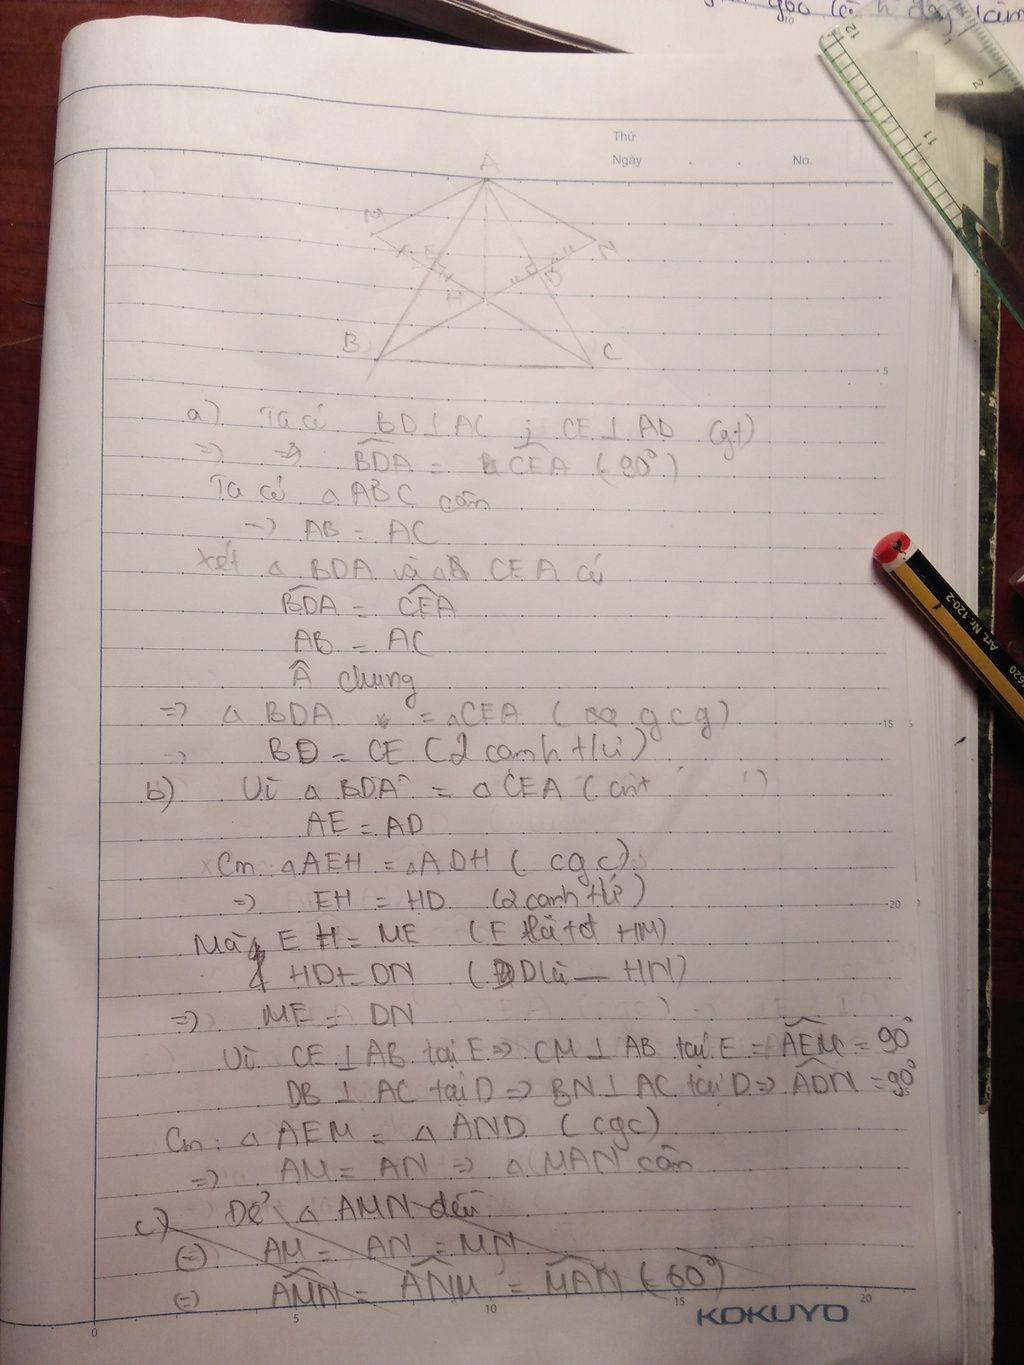 12
11
2
10
Thứ
Ngày . . No.
A
M
N
E
D
H
B
C
5
a) Ta có BD ⊥ AC ; CE ⊥ AD (gt)
=> => BDA = CEA (90°)
Ta có △ ABC cân
-> AB = AC
Xét △ BDA và △ CEA có
BDA = CEA
AB = AC
 chung
=> △ BDA = △CEA ( gcg)
15
-> BD = CE (2 cạnh tứ)
b) Vì △ BDA = △ CEA (cmt)
AE = AD
Cm △AEH = △ADH ( cgc)
=> EH = HD (2 cạnh tứ)
20
Mà EH = ME (E là tđ HM)
HD = DN ( D là — HN)
=> ME = DN
Vì CE ⊥ AB tại E => CM ⊥ AB tại E = AEM = 90°
DB ⊥ AC tại D => BN ⊥ AC tại D => ADN = 90°
Cm △ AEM = △ AND (cgc)
=> AM = AN => △ MAN cân
c) Để △ AMN đều
(=) AM = AN = MN
(=) AMN = ANM = MAN (=60°)
0 5 10 15 20
KOKUYO
Art. Nr. 120-2